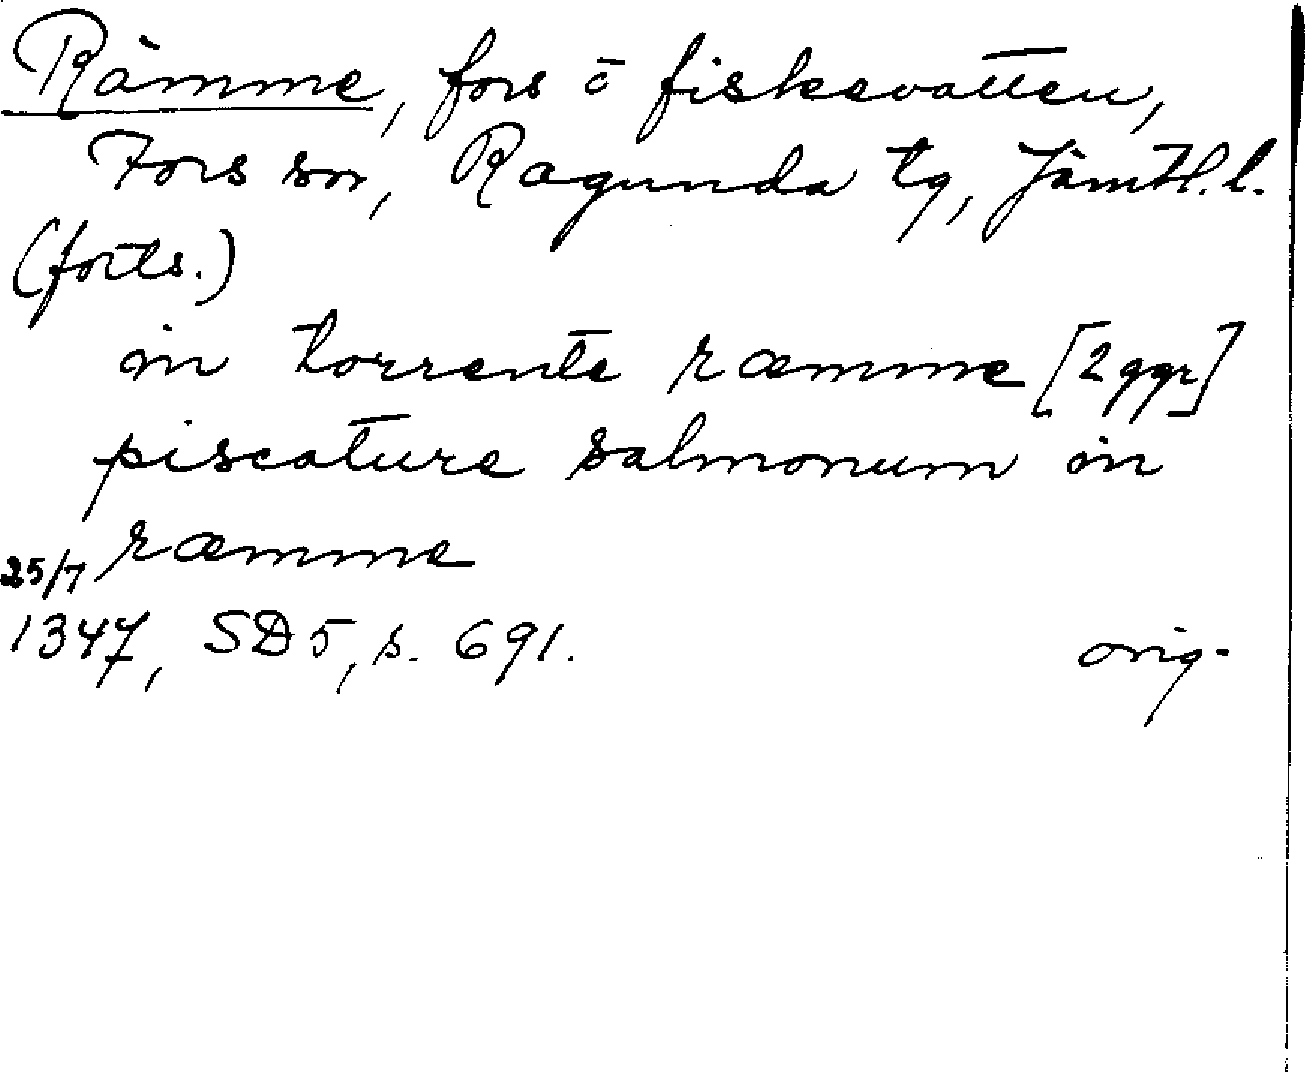 Rämme, fors o fiskevatten,
Fors sn, Ragunda tg, Jämtl. l.
(forts.)
in torrente ræmme [2 ggr]
piscature salmonum in
ræmme
25/7
1347, SD 5, s. 691. orig.